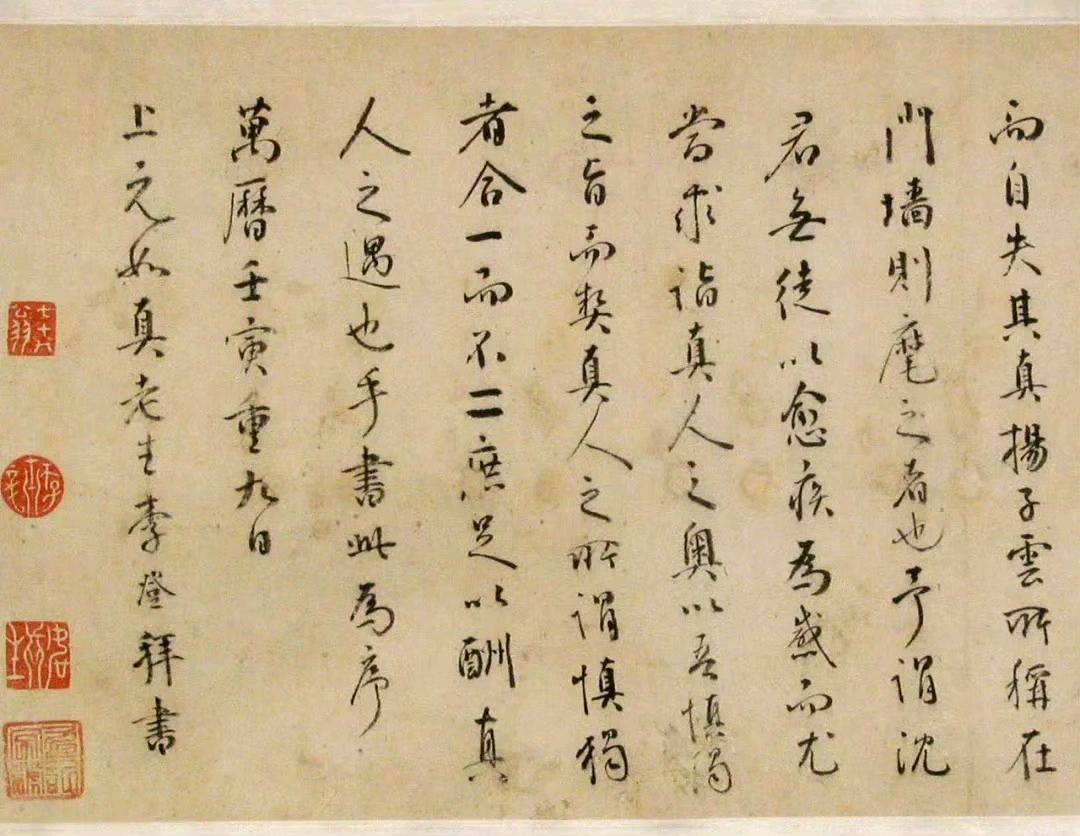 而自失其真揚子雲所稱在
門墻則麾之者也予謂沈
君無徒以愈疾爲感而尤
當求詣真人之奥以吾慎獨
之旨而契真人之所謂慎獨
者合一而不二庶足以酬真
人之遇也手書此爲序
萬曆壬寅重九日
上元如真老生李登拜書
七十六翁